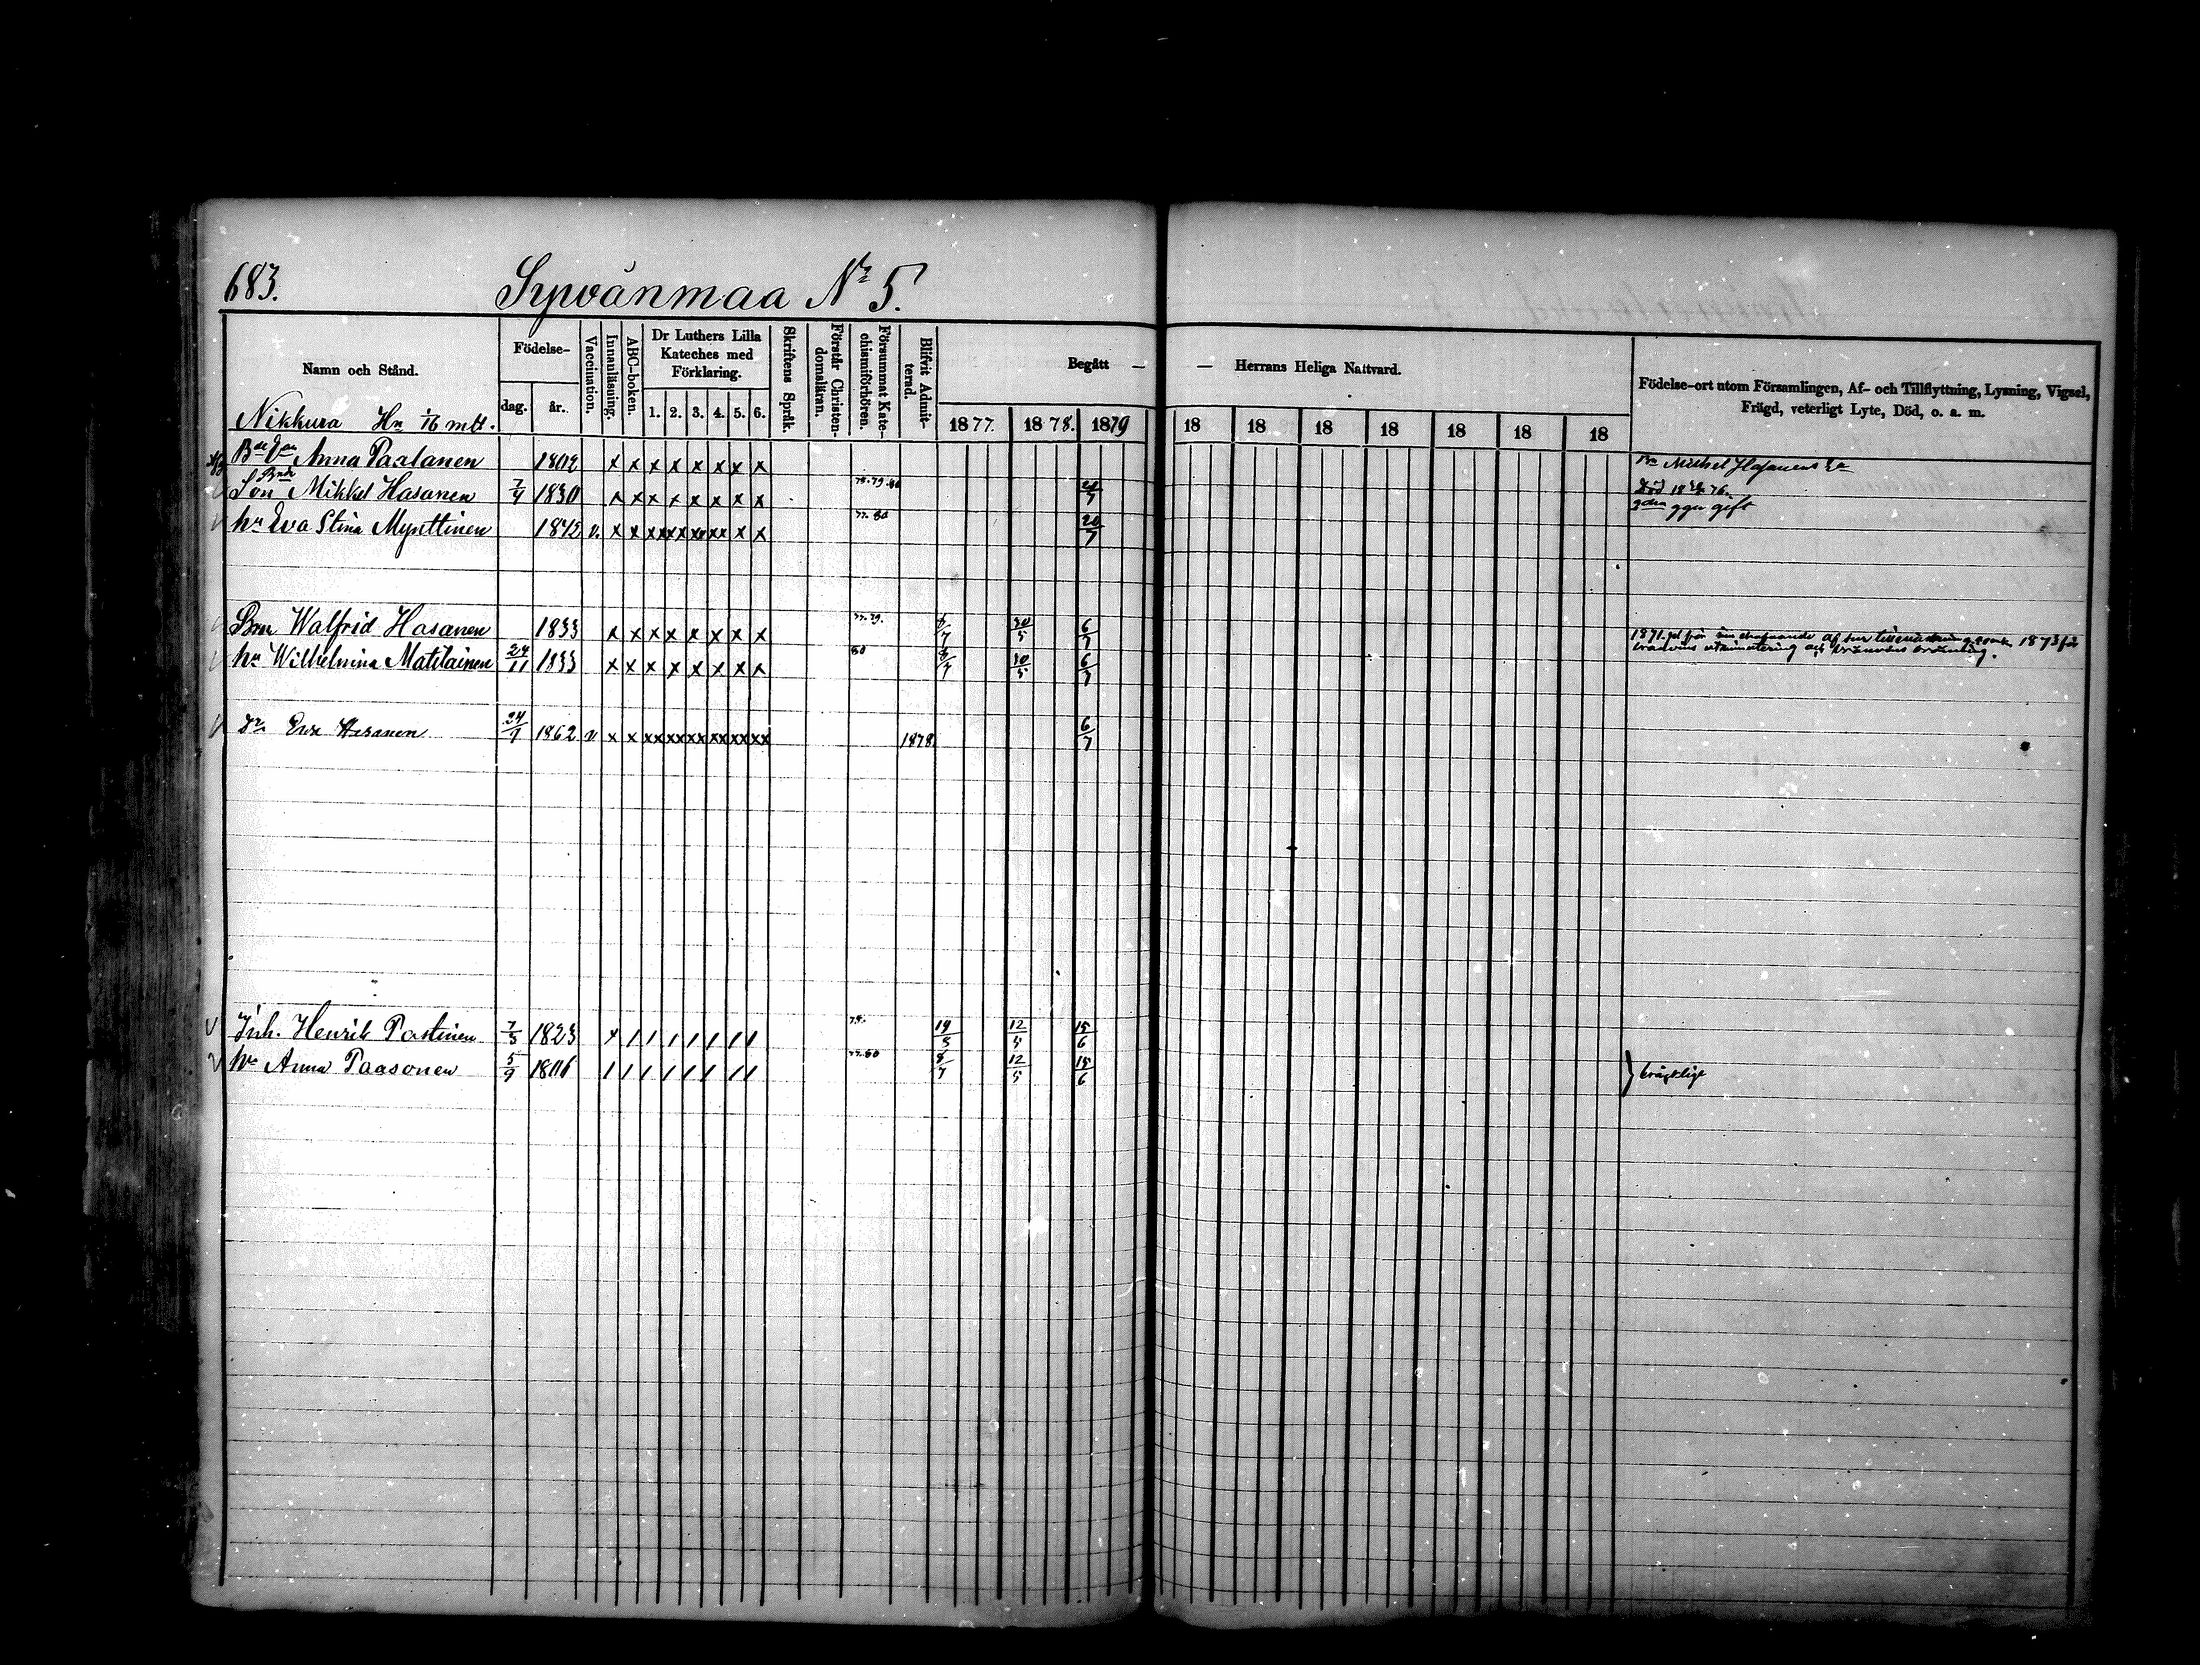 683. Sywänmaa No 5.
Namn och Stånd.
Födelse-
dag.
år.
Vaccination.
Innanläsning.
ABC-boken.
Dr Luthers Lilla
Kateches med
Förklaring.
1. 2. 3. 4. 5. 6.
Skriftens Språk.
Förstår Christen-
domsläran.
Försummat Kate-
chismiförhören.
Blifvit Admit-
terad.
Begått — — Herrans Heliga Nattvard.
1877. 1878. 1879 18 18 18 18 18 18 18
Födelse-ort utom Församlingen, Af- och Tillflyttning, Lysning, Vigsel,
Frägd, veterligt Lyte, Död, o. a. m.
Nikkura Hn 1/6 mtl.
Anna Pastanen 1802 x x x x x x x x
Son Mikkel Hasanen 7/4 1830 x x x x x x x x 20/7
hu Eva Stina Mynttinen 1842 v. x x x xx x xx xx x x 77. 80 20/7
ggn gift
Bon Walfrid Hasanen 1833 x x x x x x x x 77. 79. 8/7 30/5 6/7
hu Wilhelmina Matilainen 24/11 1833 x x x x x x x x 80 8/7 30/5 6/7
Dr Eva Hasanen 24/1 1862 v x x xx xx xx xx xx xx 1878 6/7
Inh. Henrik Partinen 7/3 1823 x / / / / / / / 19/5 12/5 15/6
hu Anna Paasonen 5/9 1806 / / / / / / / / 77. 80 8/7 12/5 15/6
bräcklige